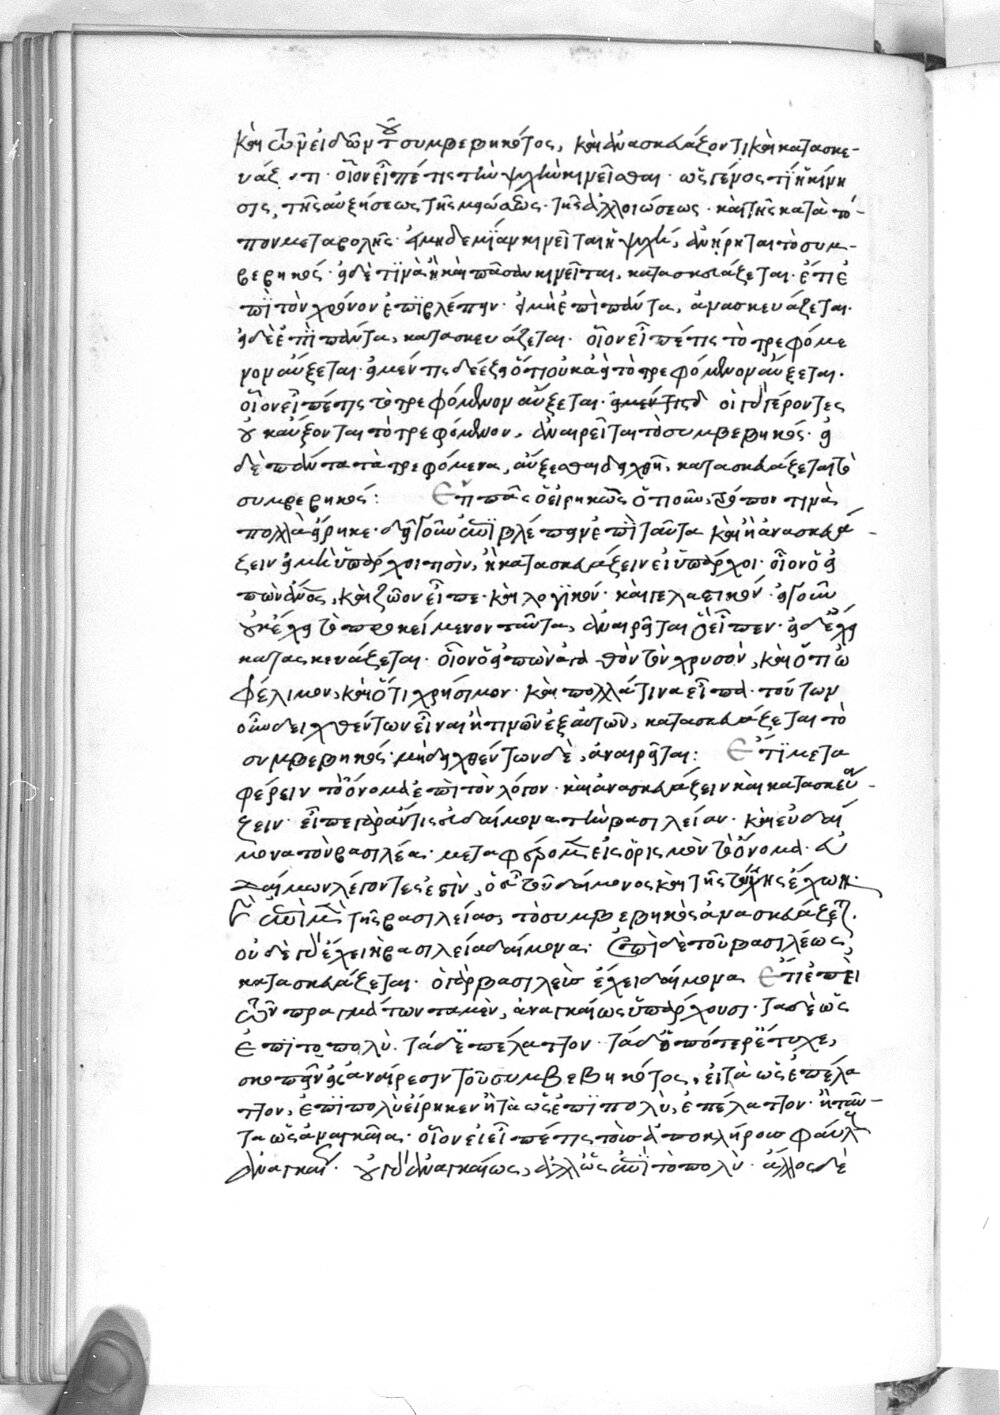 καὶ τῶν εἰδῶν τοῦ συμβεβηκότος, καὶ ἀνασκευάζοντι καὶ κατασκε-
υάζοντι· οἷον εἰ εἴπέ τις τὴν ψυχὴν κινεῖσθαι· ὡς γένος τι ἡ κίνη
σις, τῆς αὐξήσεως τῆς μειώσεως· τῆς ἀλλοιώσεως· καὶ τῆς κατὰ τό-
πον μεταβολῆς· εἰ μηδεμίαν κινεῖται ἡ ψυχή, ἀνήρηται τὸ συμ-
βεβηκός· εἰ δὲ τινὰ ἢ καὶ πᾶσαν κινεῖται, κατασκευάζεται· ἔτι ἐ
πὶ τὸν χρόνον ἐπιβλέπειν· εἰ μὴ ἐπὶ πάντα, ἀνασκευάζεται·
εἰ δὲ ἐπὶ πάντα, κατασκευάζεται· οἷον εἴπέ τις τὸ τρεφόμε
νον αὔξεται· εἰ μέν τις δείξει ὅτι οὐκ ἀεὶ τὸ τρεφόμενον αὔξεται·
οἷον εἴπέ τις τὸ τρεφόμενον αὔξεται· εἰ μέν τις δ οἱ γὰρ γέροντες
οὐκ αὔξονται τὸ τρεφόμενον, ἀναιρεῖται τὸ συμβεβηκός· εἰ
δὲ πάντα τὰ τρεφόμενα, αὔξεσθαι δειχθῇ, κατασκευάζεται τὸ
συμβεβηκός: Ἔτι πᾶς ὁ εἰρηκὼς ὁτιοῦν, τρόπον τινὰ
πολλὰ εἴρηκε· δεῖ οὖν ἐπιβλέπειν ἐπὶ ταῦτα καὶ ἢ ἀνασκευά-
ζειν εἰ μὴ ὑπάρχοιποιν, ἢ κατασκευάζειν εἰ ὑπάρχοι· οἷον ὁ εἰ
πὼν ἄνθρωπος, καὶ ζῶον εἶπε· καὶ λογικόν· καὶ γελαστικόν· εἰ οὖν
οὐκ ἔχει τὸ προκείμενον ταῦτα, ἀναιρεῖται ὃ εἶπεν· εἰ δὲ ἔχει
κατασκευάζεται· οἷον ὁ εἰπὼν ἀγαθὸν τὸν χρυσὸν, καὶ ὅτι ὠ
φέλιμον, καὶ ὅτι χρήσιμον· καὶ πολλάτινα εἶπε· τούτων
οὖν δειχθέντων εἶναι ἤ τινῶν ἐξ αὐτῶν, κατασκευάζεται τὸ
συμβεβηκός· μὴ δειχθέντων δὲ, ἀναιρεῖται: Ἔτι μετα
φέρειν τοὔνομα ἐπὶ τὸν λόγον· καὶ ἀνασκευάζειν καὶ κατασκευά-
ζειν· εἶπε γάρ τις εὐδαίμονα τὴν βασιλείαν· καὶ εὐδαί
μονα τὸν βασιλέα· μεταφέρομεν εἰς ὁρισμὸν τὸ ὄνομα· εὐ
δαίμων λέγοντες ἐστὶν, ὁ εὖ τοῦ δαίμονος καὶ τῆς τύχης ἔχων·
ἐπὶ μὲν τῆς βασιλείας τὸ συμβεβηκὸς ἀνασκευάζεται·
οὐδὲ γὰρ ἔχει ἡ βασιλεία δαίμονα· ἐπὶ δὲ τοῦ βασιλέως,
κατασκευάζεται· ὁ γὰρ βασιλεὺς ἔχει δαίμονα Ἔτι ἐπεὶ
τῶν πραγμάτων τὰ μὲν, ἀναγκαίως ὑπάρχουσι· τὰ δὲ ὡς
ἐπὶ τὸ πολὺ· τὰ δὲ ἐπέλαττον· τὰ δὲ ὁπότερ ἔτυχε,
σκοπεῖν εἰς ἀναίρεσιν τοῦ συμβεβηκότος, εἰ τὰ ὡς ἐπέλα
ττον, ἐπὶ πολὺ εἴρηκεν ἢ τὰ ὡς ἐπὶ πολὺ, ἐπέλαττον· ἢ ταῦ-
τα ὡς ἀναγκαῖα· οἷον εἰ εἴπέ τις τοὺς ἀποκλήρους φαύλους
ἀναγκαίως· οὐ γὰρ ἀναγκαίως, ἀλλ' ὡς ἐπὶ τὸ πολὺ· ἄλλος δὲ